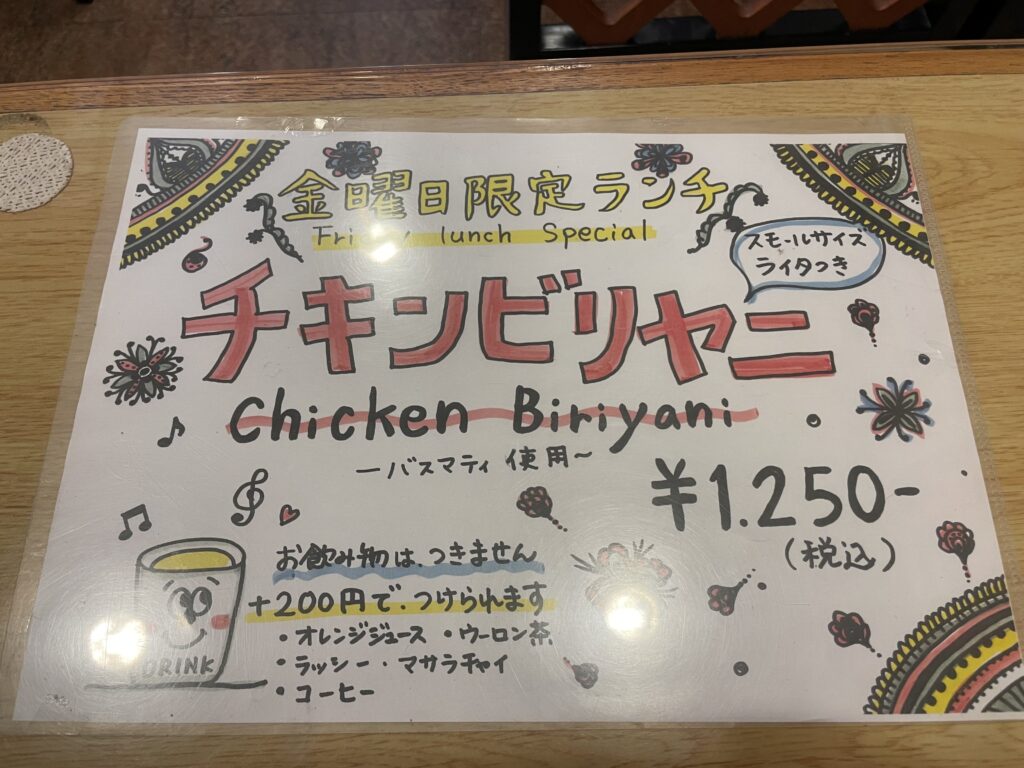 金曜日限定ランチ
Friday lunch Special
スモールサイズ
ライタつき
チキンビリヤニ
Chicken Biriyani
ーバスマティ使用～
¥1.250-
(税込)
お飲み物は、つきません
+200円で、つけられます
・オレンジジュース ・ウーロン茶
・ラッシー・マサラチャイ
・コーヒー
DRINK